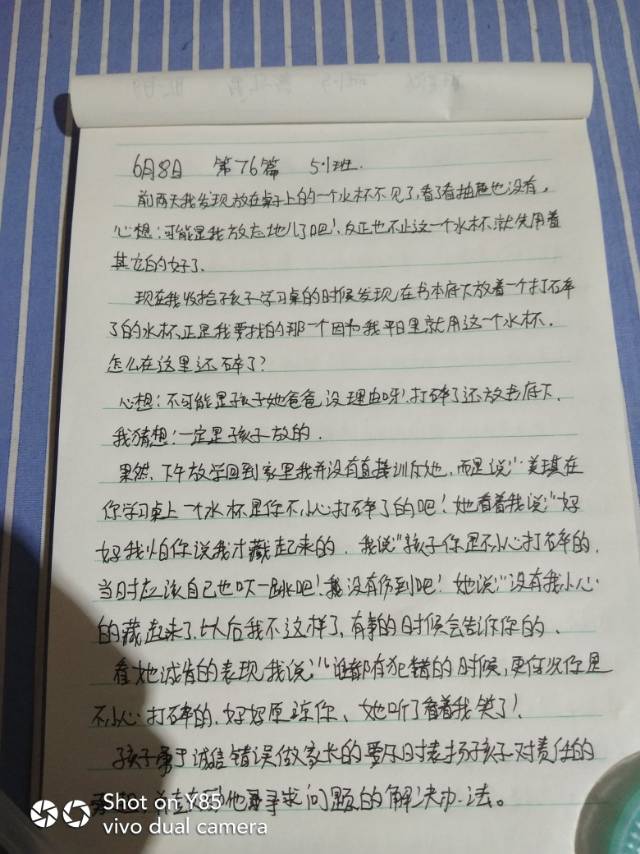 6月8日 第76篇 5.1班.
前两天我发现放在桌子上的一个水杯不见了,看了看抽屉也没有,
心想:可能是我放忘地儿了吧!反正也不止这一个水杯就先用着
其它的好了.
现在我收拾孩子学习桌的时候发现在书本底下放着一个打碎
了的水杯,正是我要找的那一个因为我平日里就用这一个水杯.
怎么在这里还碎了?
心想:不可能是孩子她爸爸没理由呀!打碎了还放书底下.
我猜想!一定是孩子放的.
果然,下午放学回到家里我并没有直接训斥她,而是说:"美琪在
你学习桌上一个水杯是你不小心打碎了的吧!她看着我说"好
好我怕你说我才藏起来的.我说"孩子你是不小心打碎的.
当时应该自己也吓一跳吧!没有伤到吧!她说:"没有我小心
的藏起来了.以后我不这样了.有事的时候会告诉你的.
看她诚肯的表现我说:"谁都有犯错的时候,更何况你是
不小心打碎的.好好原谅你、她听了看着我笑了!
孩子勇于诚信错误做家长的要及时表扬孩子对责任的
他寻求问题的解决办法。
Shot on Y85
vivo dual camera